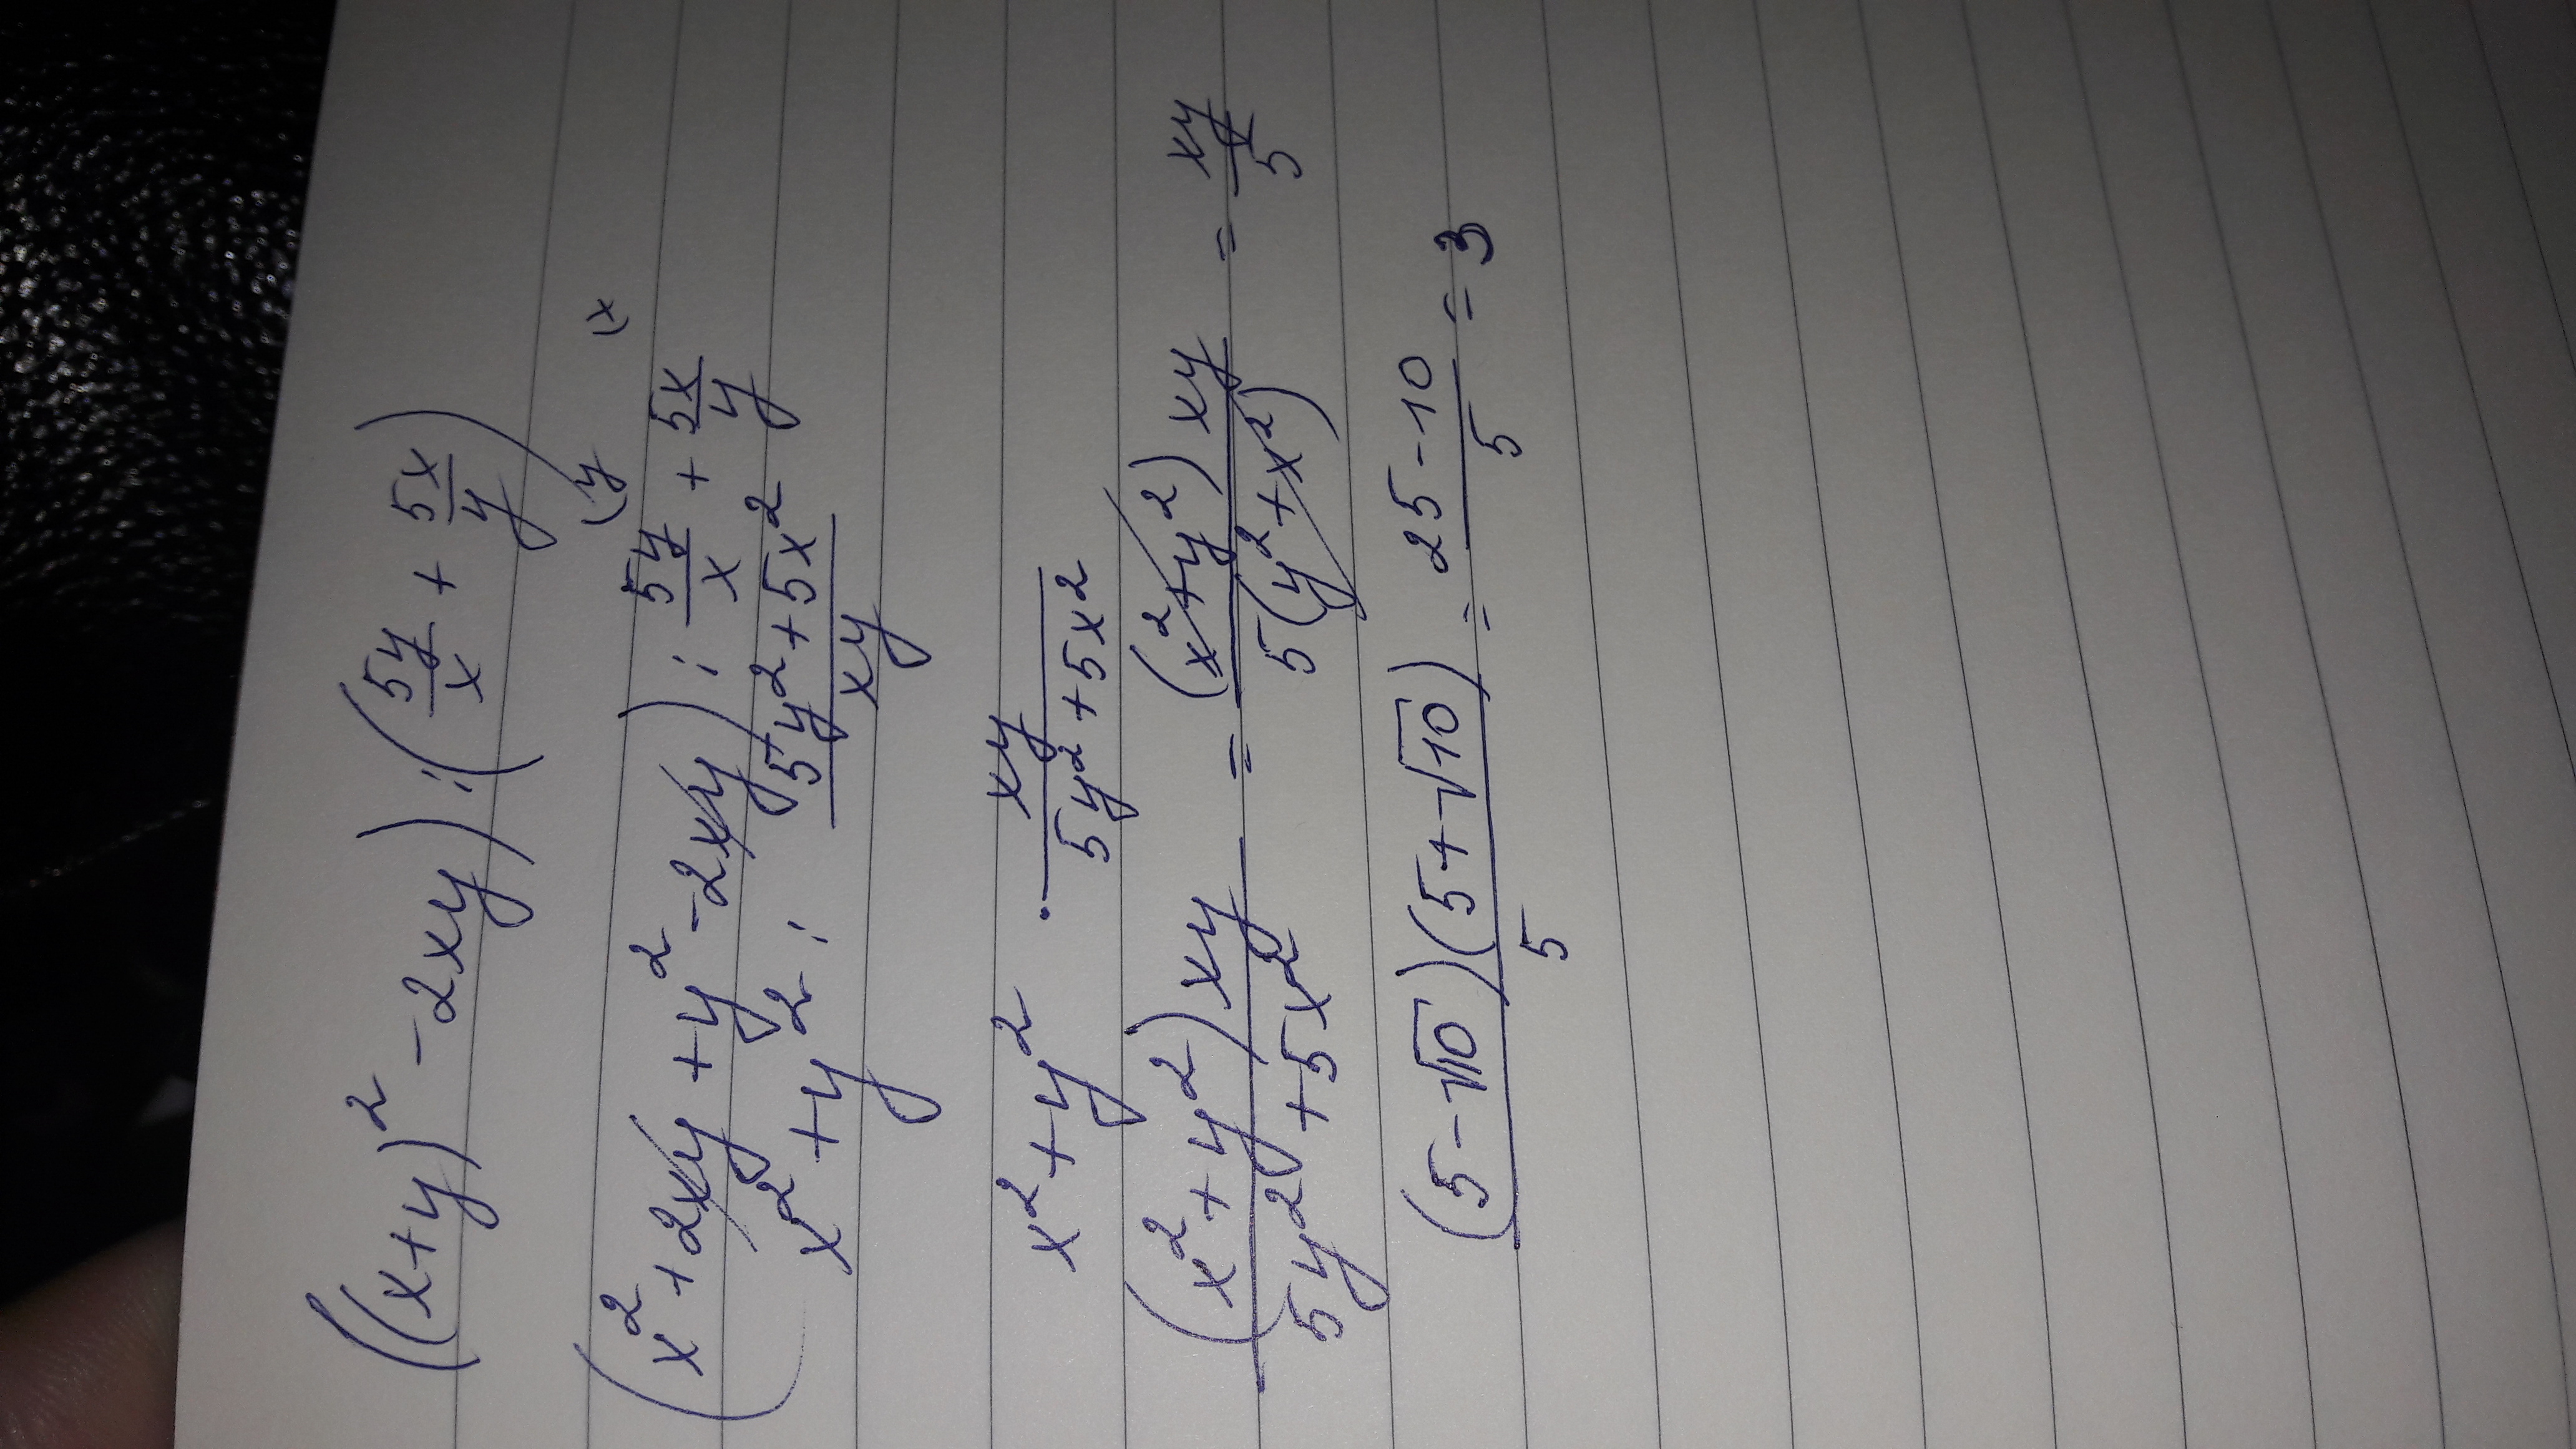 ((x+y)² - 2xy) : (5y/x + 5x/y)
(y (x
(x² + 2xy + y² - 2xy) : 5y/x + 5x/y
x² + y² : (5y² + 5x²)/xy
x² + y² · xy/(5y² + 5x²)
(x² + y²)xy/(5y² + 5x²) = (x² + y²)xy/5(y² + x²) = xy/5
(5 - √10)(5 + √10)/5 = (25 - 10)/5 = 3